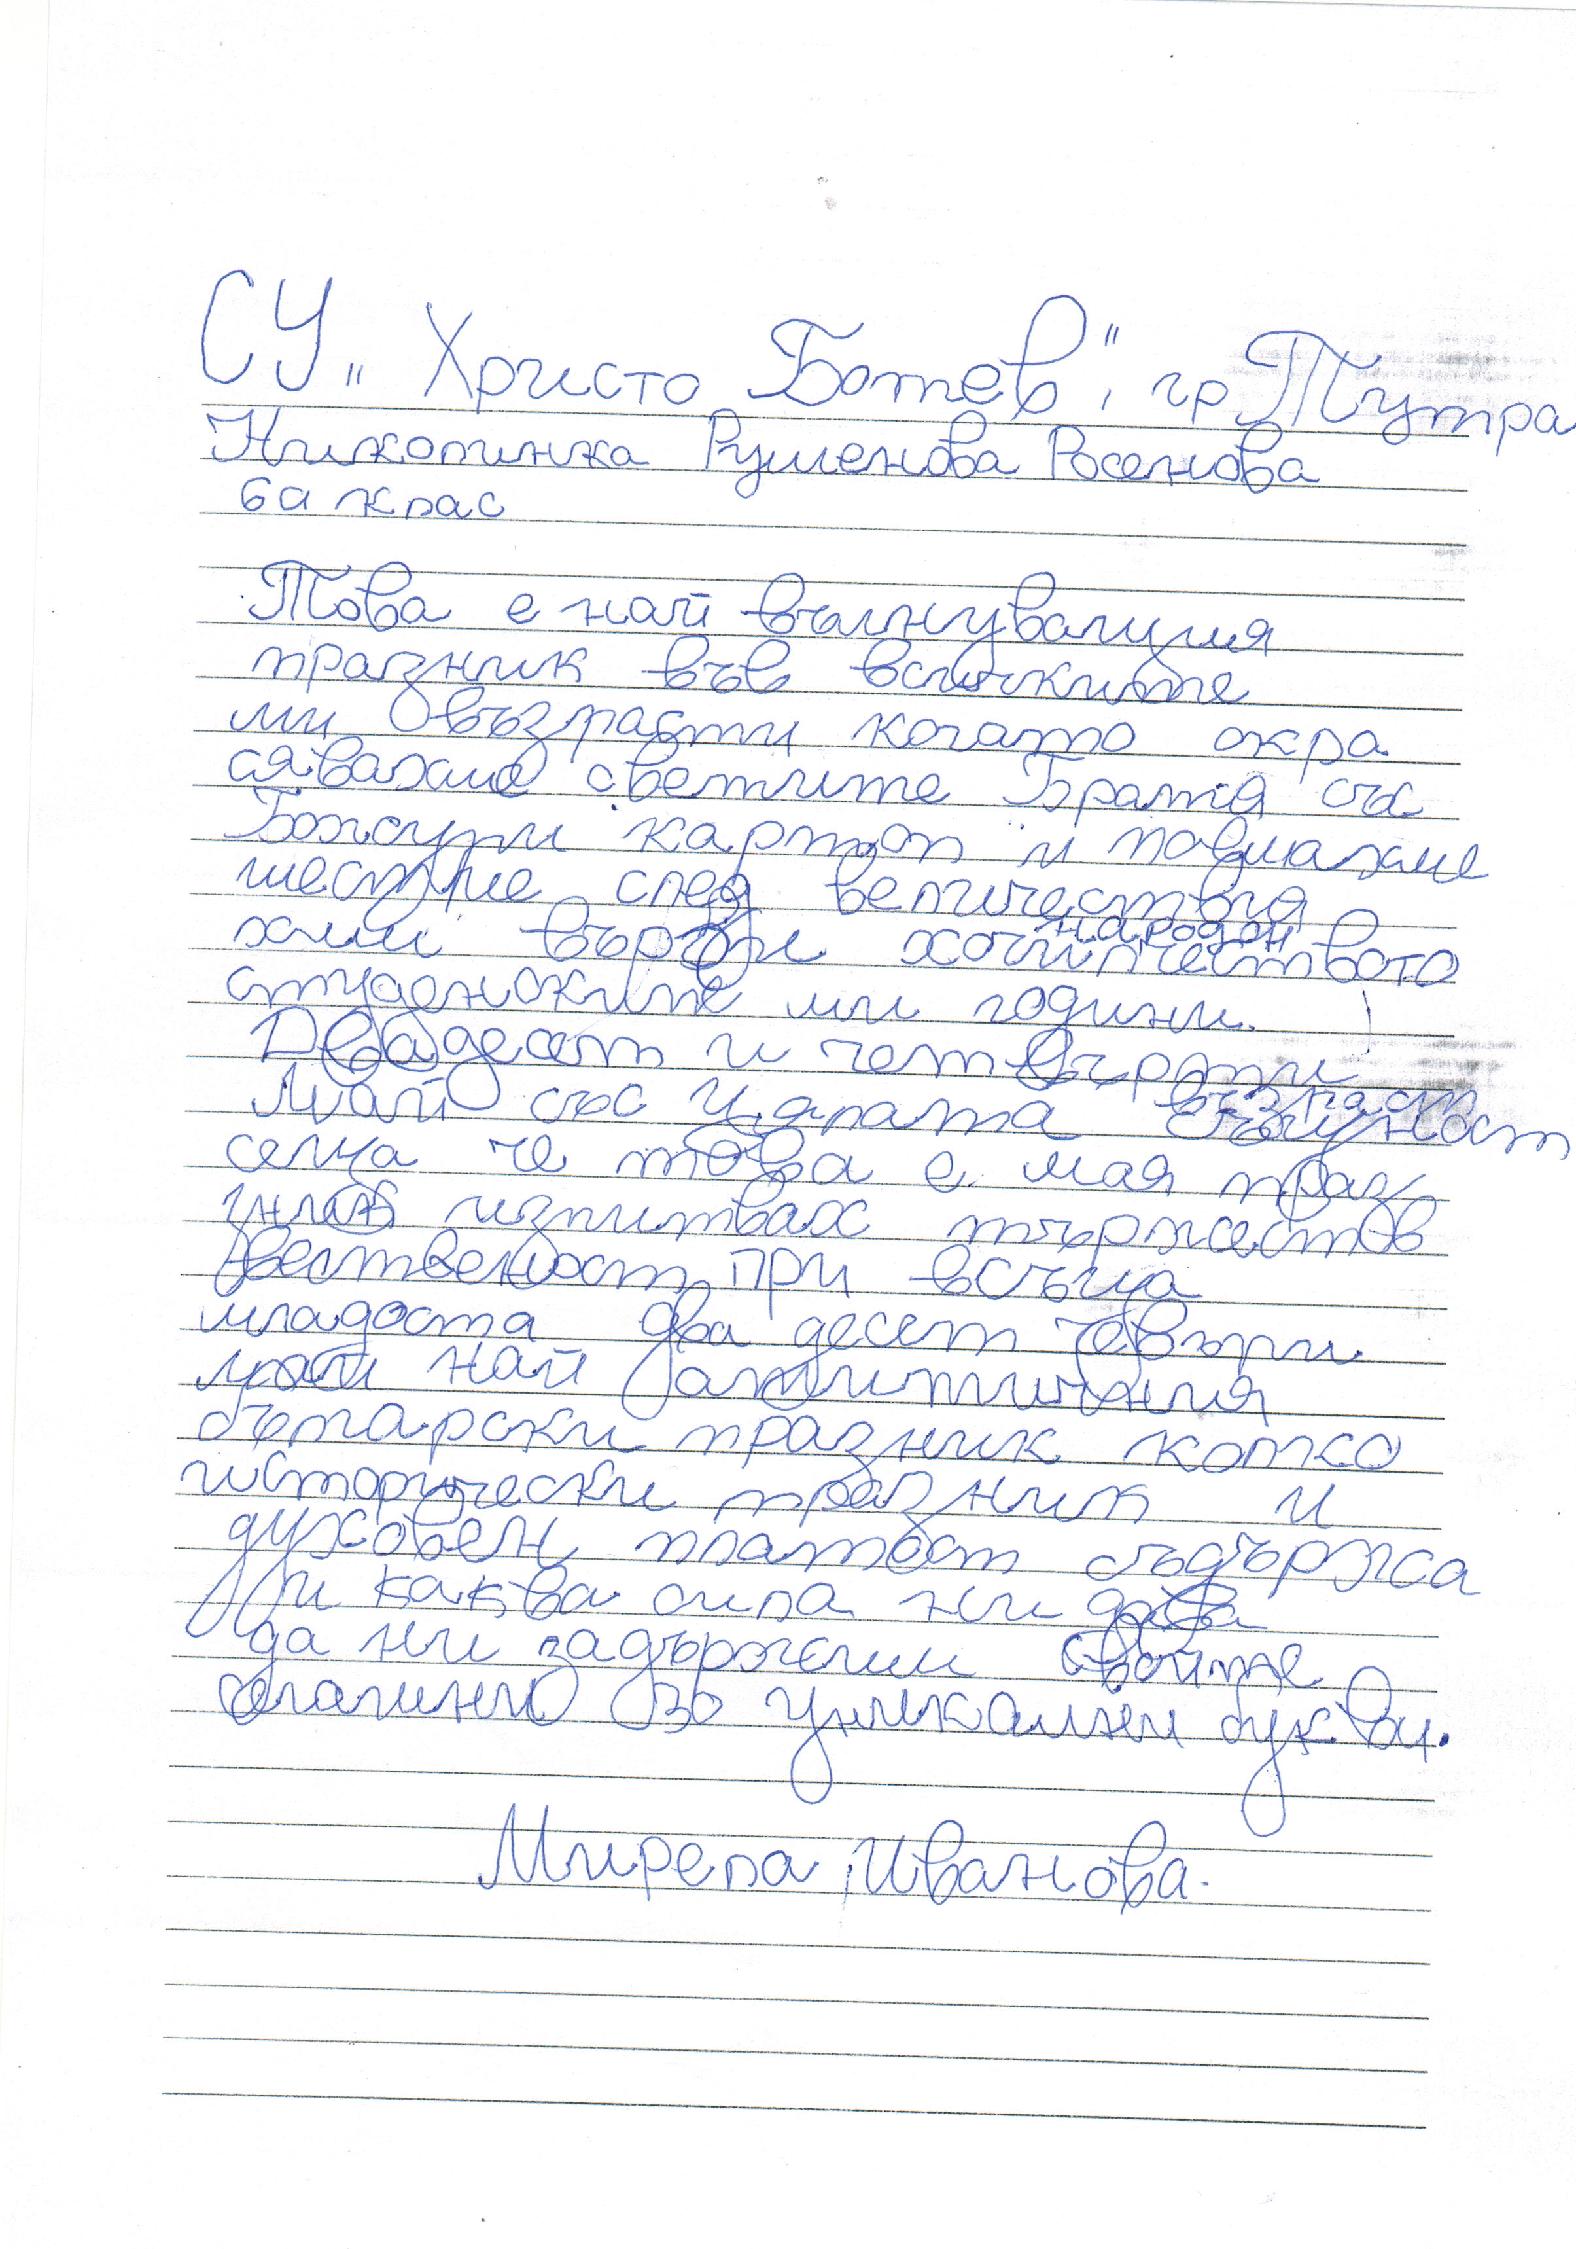 СУ „Христо Ботев", гр Тутра
Николинка Руменова Росенова
6а клас
Това е най вълнуващия
празник във всичките
ми възрасти когато окра
сявахме светите Братя със
Божури картон и
шествие след
химн върви народен
студенските ми години.
Двадесет и четвърти
Май със цялата възраст
сеца че това е мая праз
изпитвах тържестов
двественост при всъща
младоста два десет чевърти
май най
български празник колко
исторически празник и
духовен пламост съдържа
и каква сила ни дава
да ни задържими своите
за уникални букви.
Мирела Иванова.